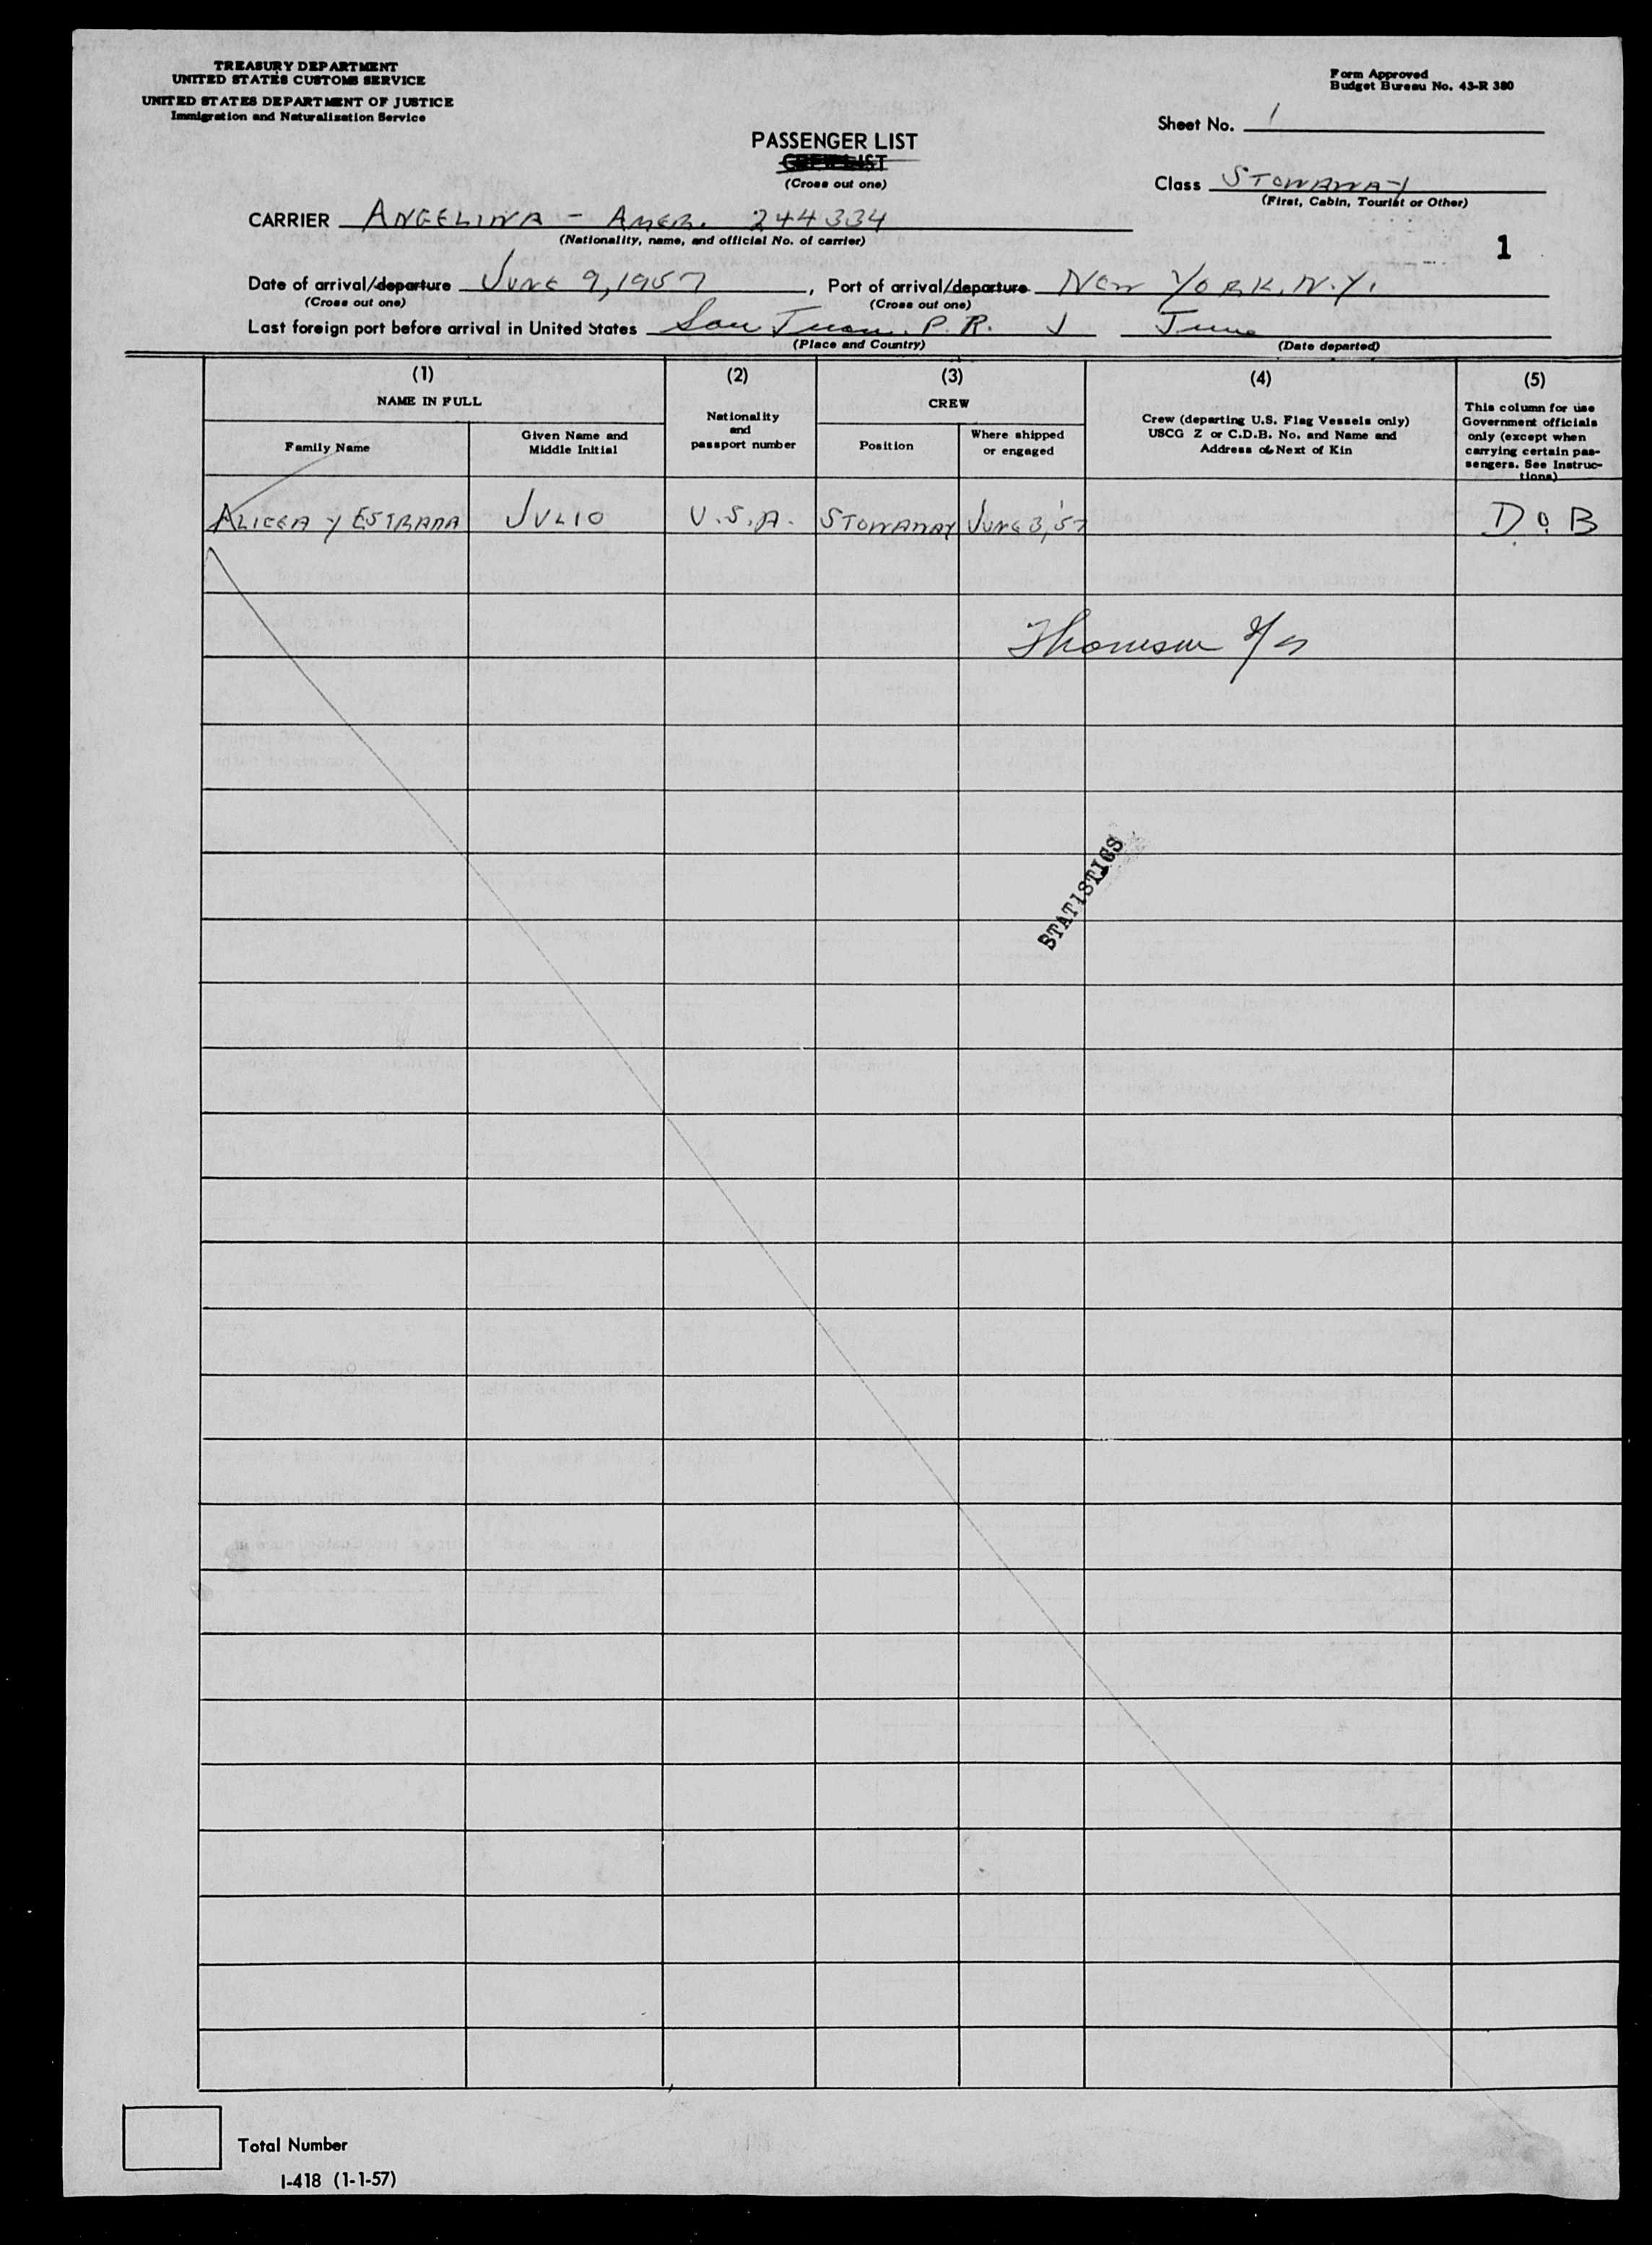 TREASURY DEPARTMENT
UNITED STATES CUSTOMS SERVICE
UNITED STATES DEPARTMENT OF JUSTICE
Immigration and Naturalization Service
Form Approved
Budget Bureau No. 43-R 380
Sheet No. 1
PASSENGER LIST
CREW LIST
(Cross out one)
Class STOWAWAY
(First, Cabin, Tourist or Other)
CARRIER ANGELINA - AMER. 244334
(Nationality, name, and official No. of carrier)
1
Date of arrival/departure JUNE 9, 1957, Port of arrival/departure NEW YORK, N.Y.
(Cross out one) (Cross out one)
Last foreign port before arrival in United States San Juan, P.R. June
(Place and Country) (Date departed)
(1) (2) (3) (4) (5)
NAME IN FULL
Family Name
Given Name and
Middle Initial
Nationality
and
passport number
CREW
Position
Where shipped
or engaged
Crew (departing U.S. Flag Vessels only)
USCG Z or C.D.B. No. and Name and
Address of Next of Kin
This column for use
Government officials
only (except when
carrying certain pas-
sengers. See Instruc-
tions)
ALICEA Y ESTRADA JULIO U.S.A. STOWAWAY JUNE 3, '57 D.O.B
Thomson
STATISTICS
Total Number
I-418 (1-1-57)